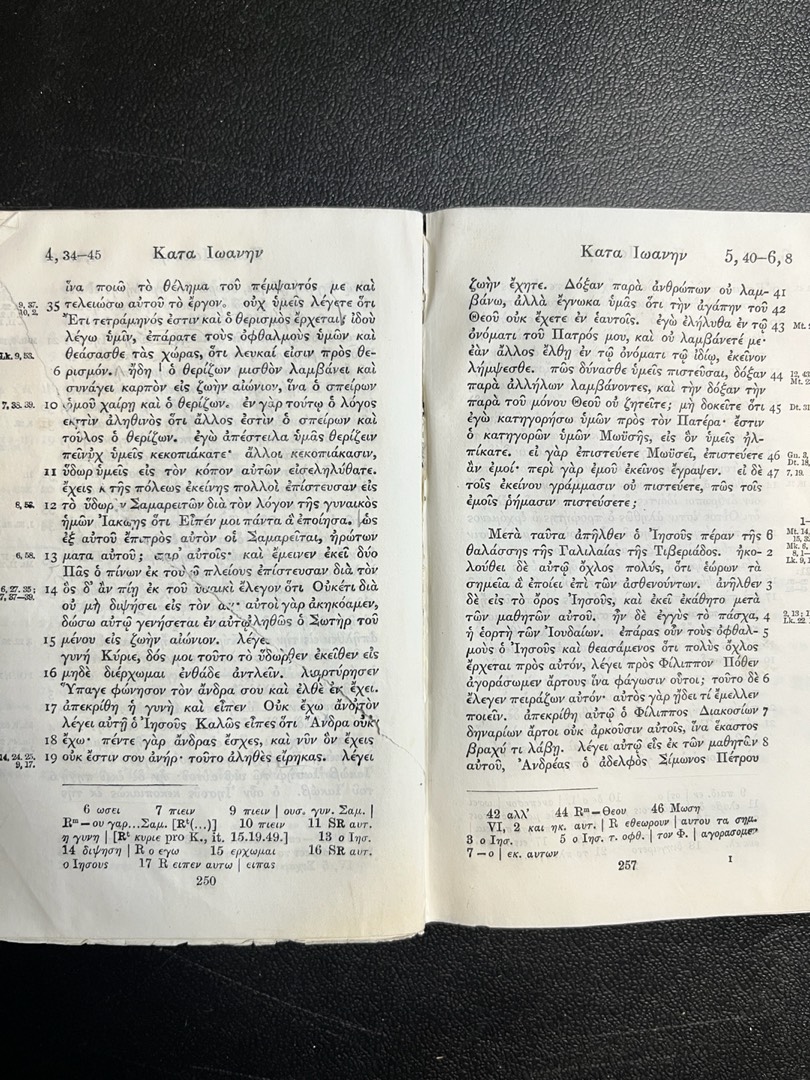 4, 34–45 Κατα Ιωανην
ἵνα ποιῶ τὸ θέλημα τοῦ πέμψαντός με καὶ
9, 37. 10, 2. 35 τελειώσω αὐτοῦ τὸ ἔργον. οὐχ ὑμεῖς λέγετε ὅτι
Ἔτι τετράμηνός ἐστιν καὶ ὁ θερισμὸς ἔρχεται; ἰδοὺ
λέγω ὑμῖν, ἐπάρατε τοὺς ὀφθαλμοὺς ὑμῶν καὶ
Lk. 9, 53. θεάσασθε τὰς χώρας, ὅτι λευκαί εἰσιν πρὸς θε-
6 ρισμόν. ἤδη ὁ θερίζων μισθὸν λαμβάνει καὶ
συνάγει καρπὸν εἰς ζωὴν αἰώνιον, ἵνα ὁ σπείρων
7, 38. 39. 10 ὁμοῦ χαίρῃ καὶ ὁ θερίζων. ἐν γὰρ τούτῳ ὁ λόγος
ἀληθινὸς ὅτι ἄλλος ἐστὶν ὁ σπείρων καὶ
ὁ θερίζων. ἐγὼ ἀπέστειλα ὑμᾶς θερίζειν
ὑμεῖς κεκοπιάκατε· ἄλλοι κεκοπιάκασιν,
11 ὕδωρ ὑμεῖς εἰς τὸν κόπον αὐτῶν εἰσεληλύθατε.
ἔχεις τῆς πόλεως ἐκείνης πολλοὶ ἐπίστευσαν εἰς
8, 53. 12 τὸ ὕδωρ ν Σαμαρειτῶν διὰ τὸν λόγον τῆς γυναικὸς
ἡμῶν ὅτι Εἶπέν μοι πάντα ἃ ἐποίησα. ὡς
ἐξ αὐτοῦ πρὸς αὐτὸν οἱ Σαμαρεῖται, ἠρώτων
6, 58. 13 ματα αὐτοῦ; παρ’ αὐτοῖς· καὶ ἔμεινεν ἐκεῖ δύο
Πᾶς ὁ πίνων ἐκ πλείους ἐπίστευσαν διὰ τὸν
6, 27. 35; 7, 37–39. 14 ὃς δ’ ἂν πίῃ ἐκ τοῦ ἔλεγον ὅτι Οὐκέτι διὰ
οὐ μὴ διψήσει εἰς τὸν αὐτοὶ γὰρ ἀκηκόαμεν,
δώσω αὐτῷ γενήσεται ἐν αὐτῷ ὁ Σωτὴρ τοῦ
15 μένου εἰς ζωὴν αἰώνιον. λέγε
γυνή Κύριε, δός μοι τοῦτο τὸ ὕδωρ ἐκεῖθεν εἰς
16 μηδὲ διέρχωμαι ἐνθάδε ἀντλεῖν.
Ὕπαγε φώνησον τὸν ἄνδρα σου καὶ ἐλθὲ ἔχει.
17 ἀπεκρίθη ἡ γυνὴ καὶ εἶπεν Οὐκ ἔχω
λέγει αὐτῇ ὁ Ἰησοῦς Καλῶς εἶπες ὅτι Ἄνδρα οὐκ
18 ἔχω· πέντε γὰρ ἄνδρας ἔσχες, καὶ νῦν ὃν ἔχεις
14, 24. 25. 9, 17. 19 οὐκ ἔστιν σου ἀνήρ· τοῦτο ἀληθὲς εἴρηκας. λέγει
6 ωσει 7 πιειν 9 πιειν | ουσ. γυν. Σαμ. |
Rᵐ – ου γαρ...Σαμ. [Rᵗ(...)] 10 πιειν 11 SR αυτ.
η γυνη | [Rᵗ κυριε pro K., it. 15.19.49.] 13 ο Ιησ.
14 διψηση | R ο εγω 15 ερχωμαι 16 SR αυτ.
ο Ιησους 17 R ειπεν αυτω | ειπας
250
Κατα Ιωανην 5, 40–6, 8
ζωὴν ἔχητε. Δόξαν παρὰ ἀνθρώπων οὐ λαμ- 41
βάνω, ἀλλὰ ἔγνωκα ὑμᾶς ὅτι τὴν ἀγάπην τοῦ 42
Θεοῦ οὐκ ἔχετε ἐν ἑαυτοῖς. ἐγὼ ἐλήλυθα ἐν τῷ 43 Mt.
ὀνόματι τοῦ Πατρός μου, καὶ οὐ λαμβάνετέ με·
ἐὰν ἄλλος ἔλθῃ ἐν τῷ ὀνόματι τῷ ἰδίῳ, ἐκεῖνον
λήμψεσθε. πῶς δύνασθε ὑμεῖς πιστεῦσαι, δόξαν 44 12, 43 Mt. 2
παρὰ ἀλλήλων λαμβάνοντες, καὶ τὴν δόξαν τὴν
παρὰ τοῦ μόνου Θεοῦ οὐ ζητεῖτε; μὴ δοκεῖτε ὅτι 45 Dt. 31
ἐγὼ κατηγορήσω ὑμῶν πρὸς τὸν Πατέρα· ἔστιν
ὁ κατηγορῶν ὑμῶν Μωϋσῆς, εἰς ὃν ὑμεῖς ἠλ-
πίκατε. εἰ γὰρ ἐπιστεύετε Μωϋσεῖ, ἐπιστεύετε 46 Gn. 3, Dt. 18,
ἂν ἐμοί· περὶ γὰρ ἐμοῦ ἐκεῖνος ἔγραψεν. εἰ δὲ 47 7, 19.
τοῖς ἐκείνου γράμμασιν οὐ πιστεύετε, πῶς τοῖς
ἐμοῖς ῥήμασιν πιστεύσετε;
1–
Μετὰ ταῦτα ἀπῆλθεν ὁ Ἰησοῦς πέραν τῆς 6 Mt. 14,
θαλάσσης τῆς Γαλιλαίας τῆς Τιβεριάδος. ἠκο- 2 15, 32 Mk. 6,
λούθει δὲ αὐτῷ ὄχλος πολύς, ὅτι ἑώρων τὰ 8, 1– Lk. 9, 1
σημεῖα ἃ ἐποίει ἐπὶ τῶν ἀσθενούντων. ἀνῆλθεν 3
δὲ εἰς τὸ ὄρος Ἰησοῦς, καὶ ἐκεῖ ἐκάθητο μετὰ
τῶν μαθητῶν αὐτοῦ. ἦν δὲ ἐγγὺς τὸ πάσχα, 4 2, 13; 1 Lk. 22
ἡ ἑορτὴ τῶν Ἰουδαίων. ἐπάρας οὖν τοὺς ὀφθαλ- 5
μοὺς ὁ Ἰησοῦς καὶ θεασάμενος ὅτι πολὺς ὄχλος
ἔρχεται πρὸς αὐτόν, λέγει πρὸς Φίλιππον Πόθεν
ἀγοράσωμεν ἄρτους ἵνα φάγωσιν οὗτοι; τοῦτο δὲ 6
ἔλεγεν πειράζων αὐτόν· αὐτὸς γὰρ ᾔδει τί ἔμελλεν
ποιεῖν. ἀπεκρίθη αὐτῷ ὁ Φίλιππος Διακοσίων 7
δηναρίων ἄρτοι οὐκ ἀρκοῦσιν αὐτοῖς, ἵνα ἕκαστος
βραχύ τι λάβῃ. λέγει αὐτῷ εἷς ἐκ τῶν μαθητῶν 8
αὐτοῦ, Ἀνδρέας ὁ ἀδελφὸς Σίμωνος Πέτρου
42 αλλ’ 44 Rᵐ – Θεου 46 Μωση
VI, 2 και ηκ. αυτ. | R εθεωρουν | αυτου τα σημ.
3 ο Ιησ. 5 ο Ιησ. τ. οφθ. | τον Φ. | αγορασομεν
7 – ο | εκ. αυτων
257 I